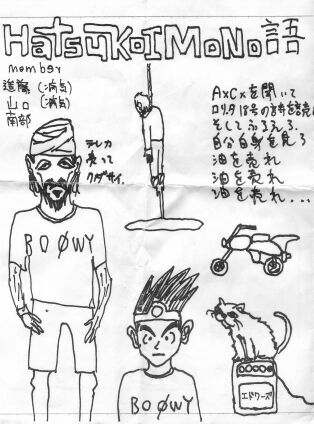 HatsuKoIMoNo語
member
進藤(病気)
山口(病気)
南部
テレカ
売って
クダサイ.
A×C×を聞いて
ロリータ18号の詩を読め
そしてふるえろ.
自分自身を見ろ
油を売れ
油を売れ
油を売れ...
BOØWY
BOØWY
エドワーズ